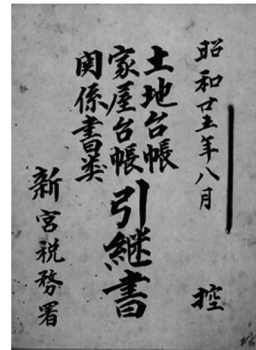 昭和廿五年八月
土地台帳
家屋台帳
関係書类
引継書
控
新宮税務署